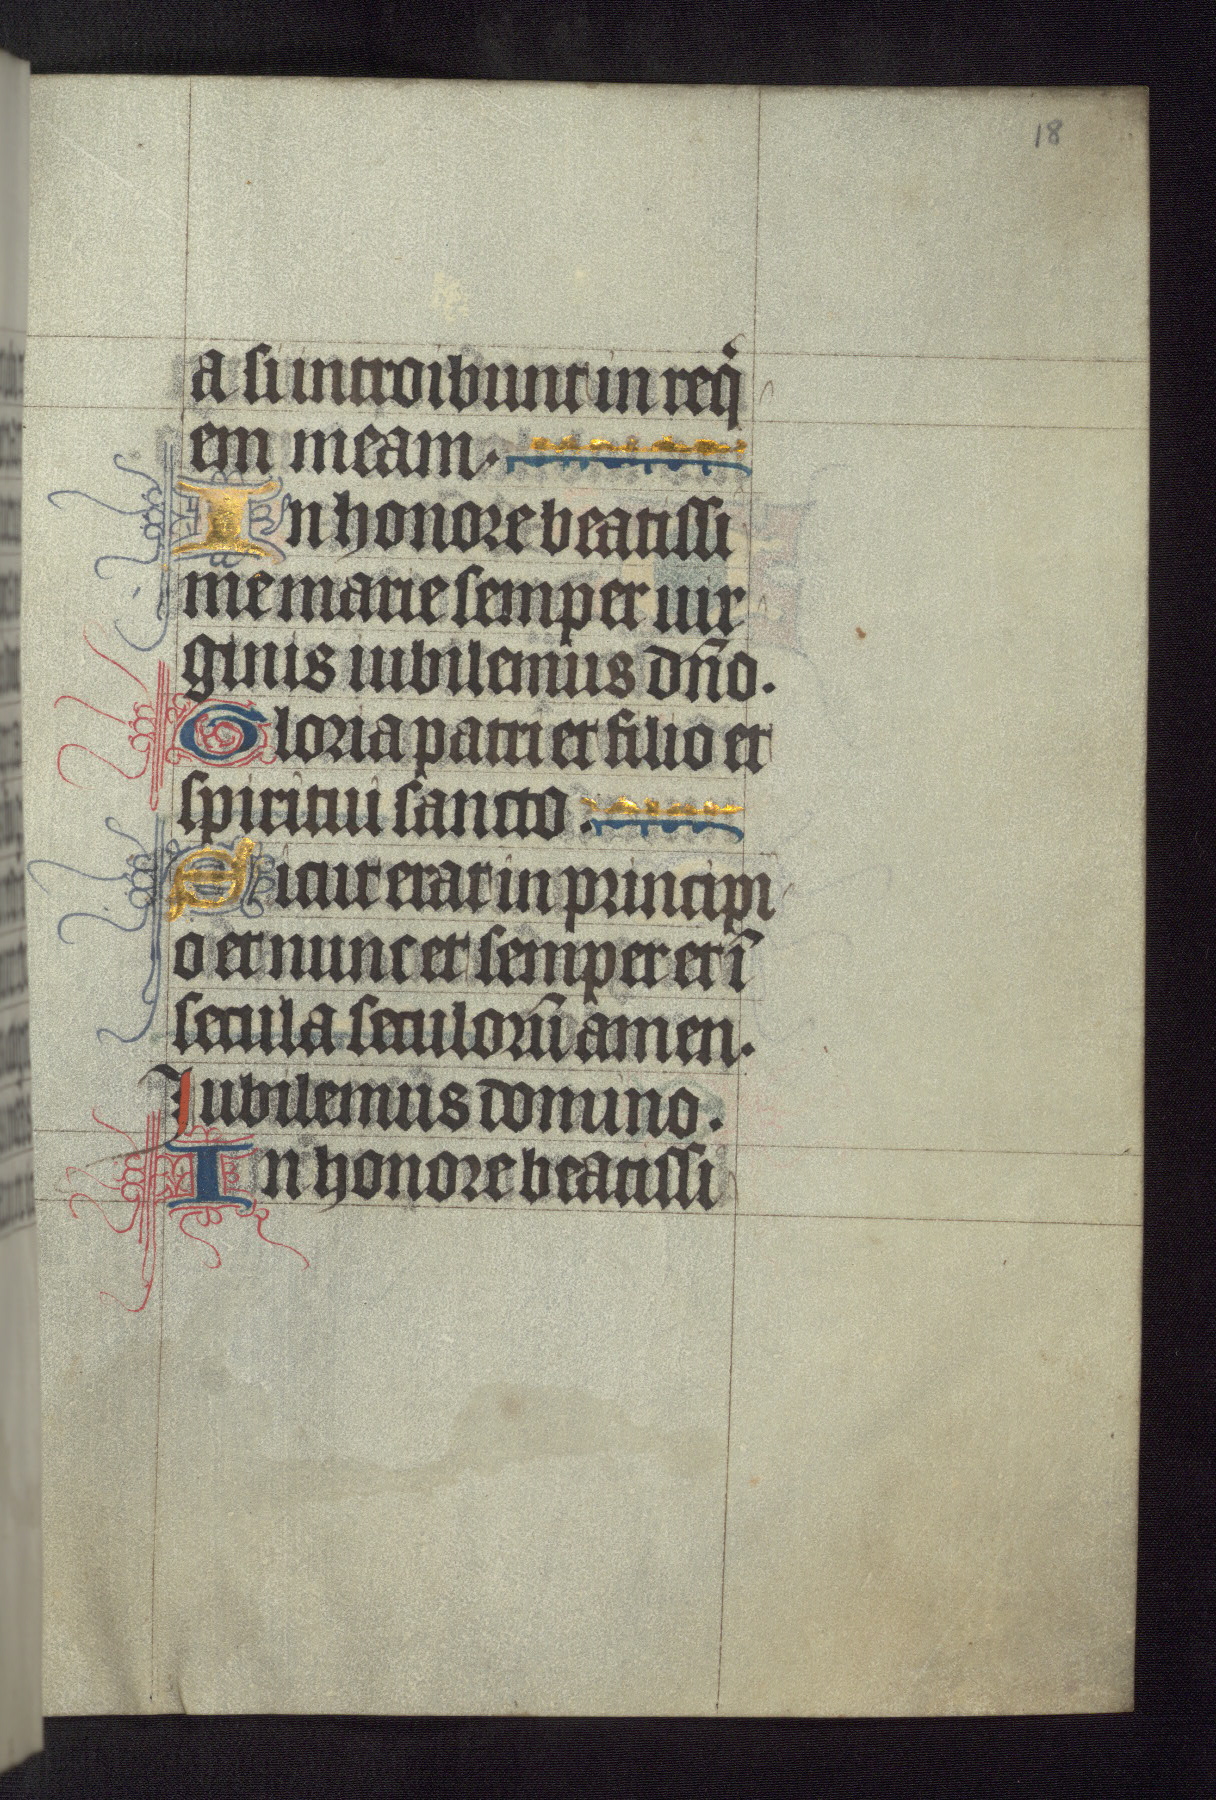 18
a si introibunt in reqͥ
em meam.
In honore beatissi
me marie semper uir
ginis iubilemus dn̄o.
Gloria patri et filio et
spiritui sancto.
Sicut erat in principi
o et nunc et semper et ī
secula seculorū amen.
Iubilemus domino.
In honore beatissi